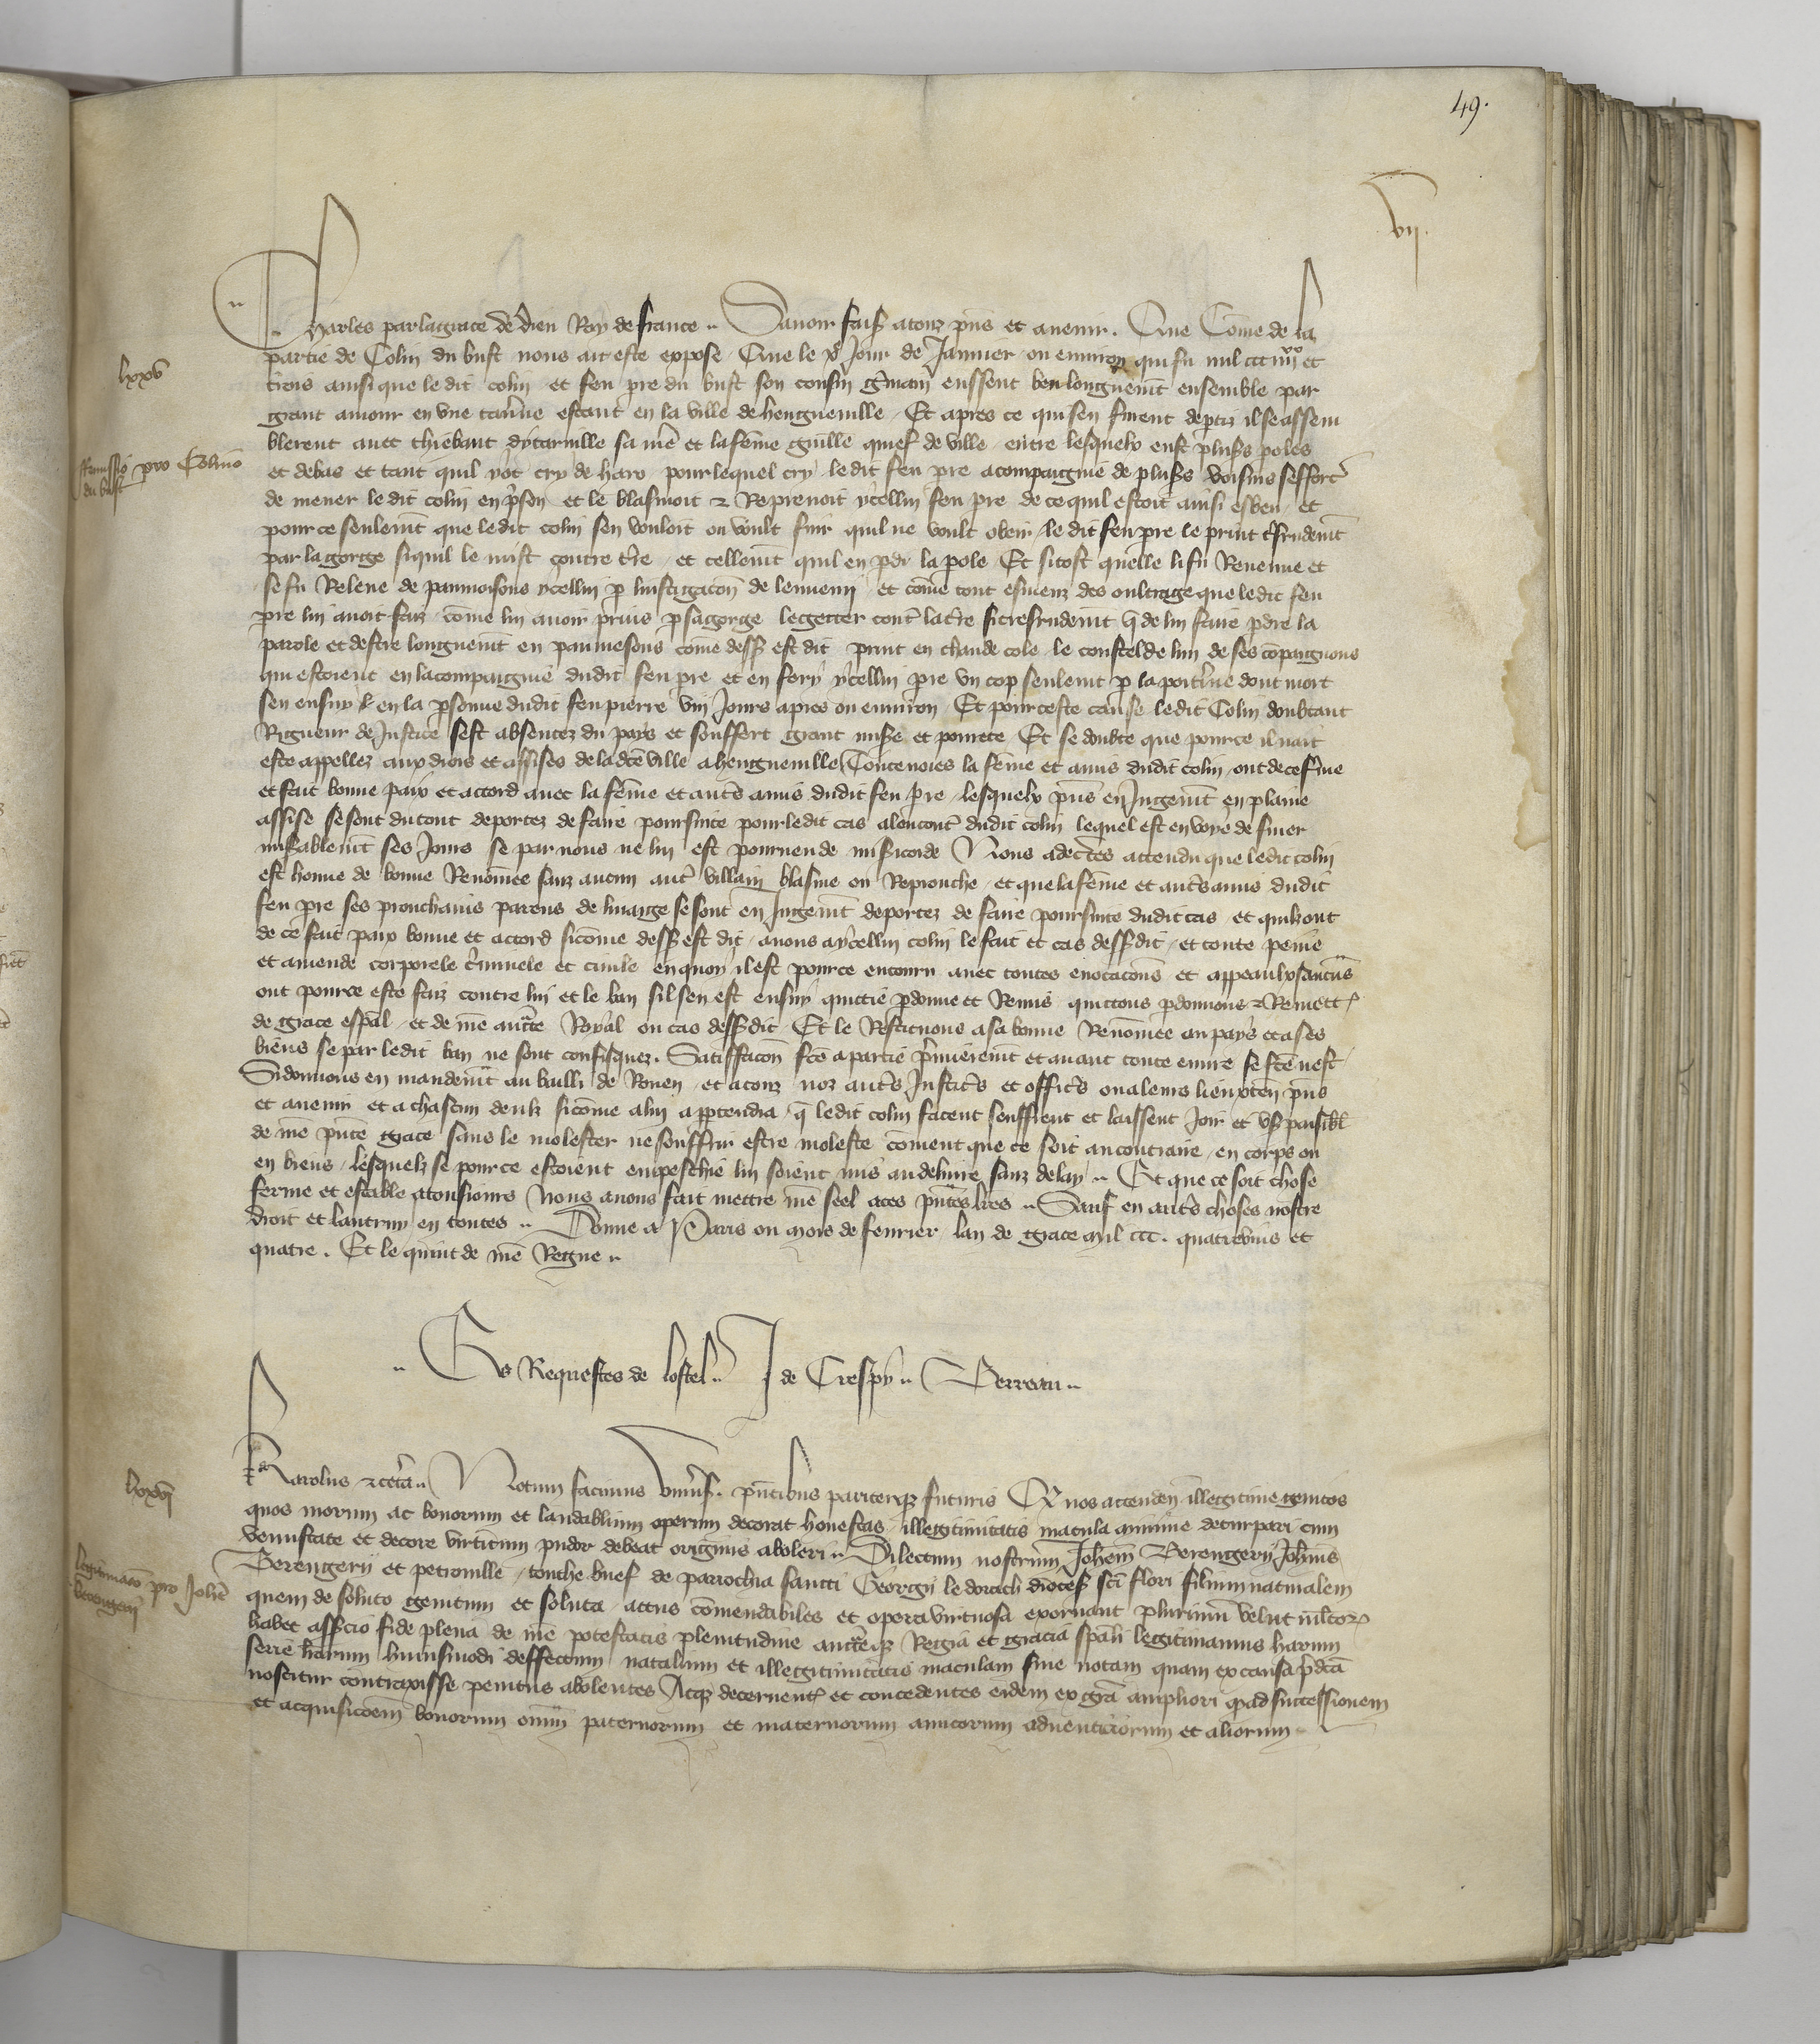 49.
vii.
Charles par la grace de dieu Roy de france .. Savoir faisons atouz p̃ns et avenir . Que Cõme de la
lxxv
partie de Colin du bust nous ait este expose / Que le xᵉ Jour de Janvier / ou environ qui fu mil ccc iiiiˣˣ et
trois ainsi que ledit colin et feu pre du bust son cousin g̃main eussent beu longuemt ensemble par
grant amour en une tav̓ne estant en la ville de henguenille / Et apres ce quisen furent deptiz il se assem
blerent avec thiebaut dytarville sa mẽ et la fẽme guille de ville / entre lesquelx eust plus̃s poles
Remissio pro Colino
du bust
et debas et tant quil y ot cry de haro pour lequel cry ledit feu pre acompaignie de plus̃s voisins sefforc̃
de mener ledit colin en p̃son et le blasmoit ⁊ Reprenoit ycellui feu pre de ce quil estoit ainsi esben / et
pour ce seulemt que ledit colin sen vouloit ou voult fuir quil ne voult obeir / ledit feu pre le print
par la gorge si quil le mist contre t̃re / et tellemt quil en pdi la pole Et si tost quelle li fu Revenue et
se fu Releve de paumoisons ycellui p linstigacõn de lennemi / et cõme tout esmeuz des oultrage que ledit feu
pre lui avoit faiz / cõme lui avoir prins p sa gorge le getter cont̃ la t̃re si tresrudemt q̃ de lui faire pdre la
parole et destre longuemt en paumesons cõme dess9 est dit print en chaude cole le coustel de lun de ses cõpaignons
qui estoient en la compaignie dudit feu pre et en fery ycellui pre un cop seulemt p la poit̃ne dont mort
sen ensuy en la psonne dudit feu pierre viii Jours apres ou environ / Et pour ceste cause ledit Colin doubtant
Rigueur de Justice sest absentez du pays et souffert grant mis̃e et povrete Et se doubte que pour ce il nait
este appellez aux drois et assises de la dc̃e ville a henguenille Toutevoies la fẽme et amis dudit colin / ont de ce fine
et fait bonne paix et accord avec la fẽme et aut̃s amis dudit feu pre / lesquelx p̃ns en Jugemt en plaine
assise se sont du tout deportez de faire poursuite pour ledit cas alencont̃ dudit colin lequel est en voye de finer
mis̃ablemt ses Jours se par nous ne lui est pourveu de mis̃icorde Nous adec̃tes attendu que ledit colin
est home de bonne Renõmee sanz aucun aut̃ villain blasme ou Reprouche / et que la fẽme et aut̃s amis dudit
feu pre ses prouchains parens de linaige se sont en Jugemt deportez de faire poursuite dudit cas / et quilz ont
de ce fait paix bonne et accord sicõme dess9 est dit / avons aycellui colin le fait et cas dess9dit / et toute peine
et amende corporele c̃minele et civile en quoy il est pour ce encouru avec toutes evocacõns et appeaulx saucũs
ont pour ce este faiz contre lui et le ban sil sen est ensuy quittie pdonne et Remis quittons pdonnons ⁊ Remett̃
de grace esp̃al / et de nr̃e auct̃te Royal ou cas dess9dit / Et le Restituons a sa bonne Renõmee au pays et a ses
biens se par ledit ban ne sont confisquez . Satiffacõn fc̃e a partie p̃mieremt et avant toute euvre se fc̃e nest /
Si donnons en mandemt au bailli de Rouen / et a touz noz aut̃s Justic̃s et offic̃s ou a leurs lieuxten̄ p̃ns
et avenir et a chascun deulx sicõme alui apptendra / q̃ ledit colin facent seuffrent et laissent Joir et us̃ paisibl̃
de nr̃e p̃nte grace sans le molester ne souffrir estre moleste cõment que ce soit au contraire / en corps ou
en biens / lesquelz se pour ce estoient empeschie lui soient mis au delivre sanz delay .. Et que ce soit chose
ferme et estable atousiours Nous avons fait mettre nr̃e seel a ces p̃ntes lr̃es .. Sauf en aut̃s choses nostre
droit et lautruy en toutes .. Donne a Paris ou mois de fevrier / lan de grace mil ccc . quatrevins et
quatre . Et le quint de nr̃e Regne ..
.. Es Requestes de lostel .. J de Crespy .. Berreau ..
lxxvi
Karolus ⁊ cet̃a .. Notum facimus uniṽs . p̃ntibus pariterq; futuris Q̃ nos attenden̄ illegitime genitos
quos morum ac bonorum et laudabilium operum decorat honestas / illegitimitatis macula minime deturpari cum
venustate et decore virtutum pudor debeat originis aboleri .. Dilectum nostrum Johem̃ Berengerii Joh̃nis
Legitimacõ pro Joh̃e
berengerii
Berengerii et petronille / touche buef de parrochia sancti Georgii ledorach dioces̃ sc̃i flori filium naturalem
quem de soluto genitum et soluta / actus cõmendabiles et opera virtuosa exornant plurimũ velut multor̃
habet asserc̃io fide plena de nr̃e potestatis plenitudine auct̃teq; Regia et gracia sp̃ali legitimamus harum
serie harum huiusmodi deffectum natalium et illegitimitatis maculam sive notam quam ex causa p̃dc̃a
noscitur contraxisse penitus abolentes Atq; decernent̃ et concedentes eidem ex gr̃a ampliori quod ad successionem
et acquisicõem bonorum omĩ paternorum et maternorum amicorum adventiciorum et aliorum